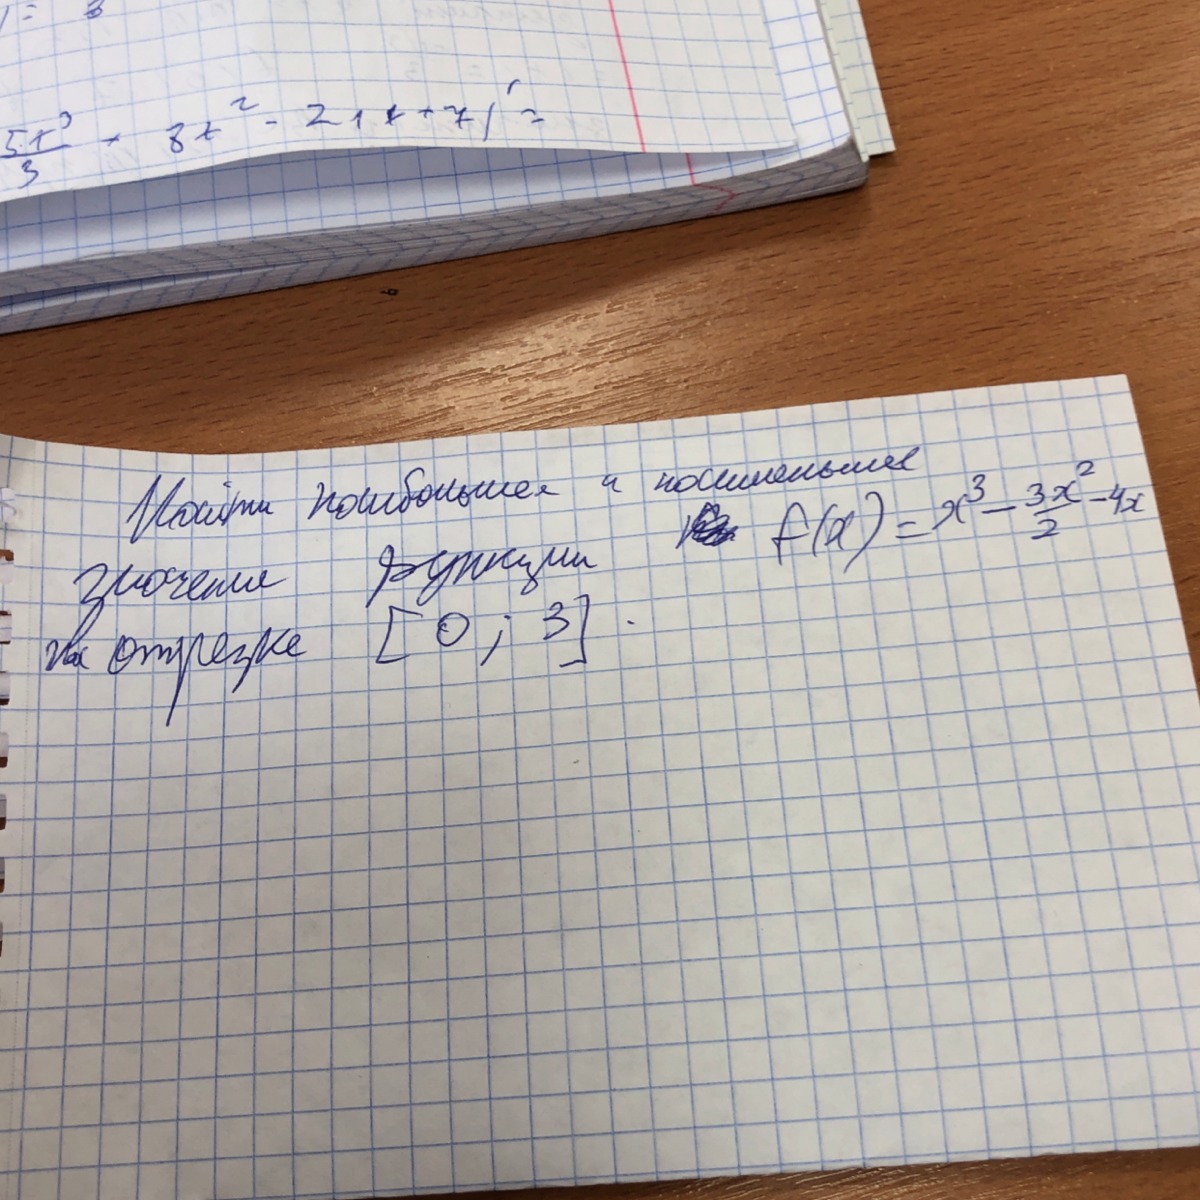 5t³/3 + 8t² - 21t + 7)' =
Найти наибольшее и наименьшее
значения функции f(x) = x³ - 3x²/2 - 4x
на отрезке [0; 3].